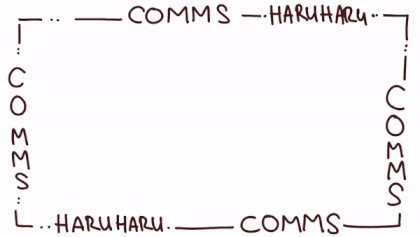 COMMS HARUHARU
COMMS
COMMS
HARUHARU COMMS